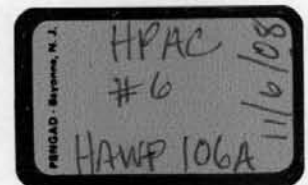 PENGAD - Bayonne, N. J.
HPAC
#6
HAWP 106A
11/6/08